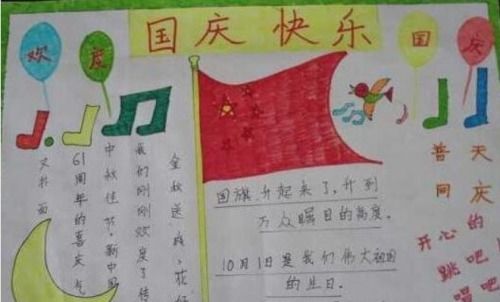 国庆快乐
欢度
国庆
金秋送爽,花好
我们刚刚欢度了传
中秋佳节,新中国
61周年的喜庆气
又扑面
国旗升起来了,升到
万众瞩目的高度。
10月1日是我们伟大祖国
的生日。
普天
同庆
开心的
跳吧!
唱吧!